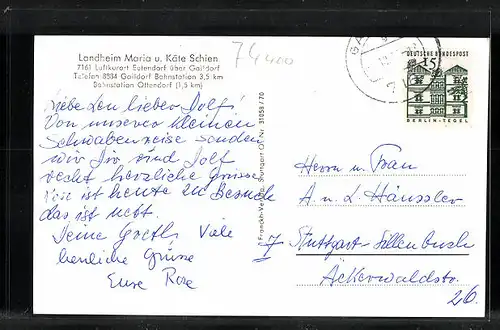 Landheim Maria u. Käte Schien
7161 Luftkurort Eutendorf über Gaildorf
Telefon 8584 Gaildorf Bahnstation 3,5 km
Bahnstation Ottendorf (1,5 km)
74400
DEUTSCHE BUNDESPOST
15
BERLIN-TEGEL
GA
Liebe Leu lieber Dolf!
Von unserer kleinen
Schwabenreise senden
wir Dir und Dolf
recht herzliche Grüsse
ist heute zu Besuch
das ist nett.
Deine Gretl. Viele
herzliche Grüsse
Eure Rose
Franckh-Verlag, Stuttgart O5 Nr. 31058/70
Herrn u. Frau
A. u. L. Häussler
7 Stuttgart-Sillenbuch
Ackerwaldstr.
26.